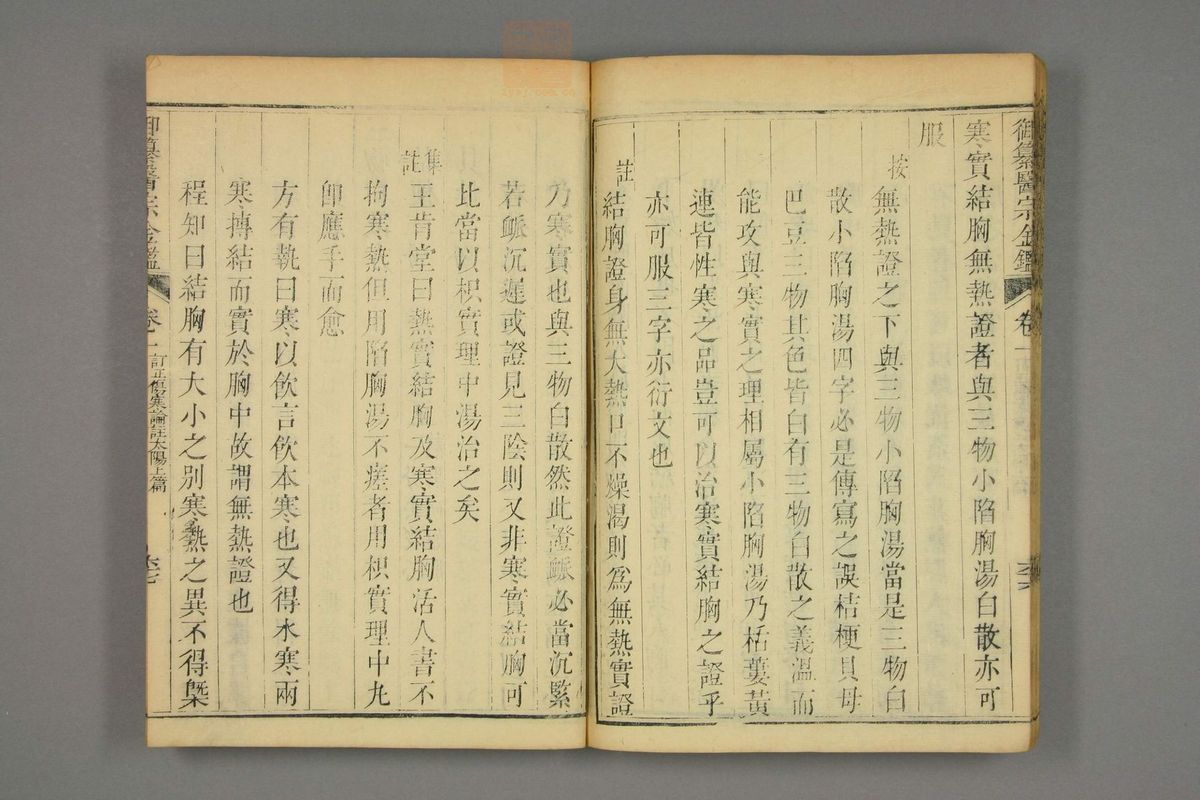 御纂醫宗金鑑 卷一 六六
寒實結胸無熱證者與三物小陷胸湯白散亦可
服
按
無熱證之下與三物小陷胸湯當是三物白
散小陷胸湯四字必是傳寫之誤桔梗貝母
巴豆三物其色皆白有三物白散之義溫而
能攻與寒實之理相屬小陷胸湯乃栝蔞黃
連皆性寒之品豈可以治寒實結胸之證乎
亦可服三字亦衍文也
註
結胸證身無大熱口不燥渴則為無熱實證
乃寒實也與三物白散然此證脈必當沉緊
若脈沉遲或證見三陰則又非寒實結胸可
比當以枳實理中湯治之矣
集註
王肯堂曰熱實結胸及寒實結胸活人書不
拘寒熱但用陷胸湯不瘥者用枳實理中丸
卽應手而愈
方有執曰寒以飲言飲本寒也又得水寒兩
寒搏結而實於胸中故謂無熱證也
程知曰結胸有大小之別寒熱之異不得槩
御纂醫宗金鑑 卷一 訂正傷寒論註太陽上篇 六七